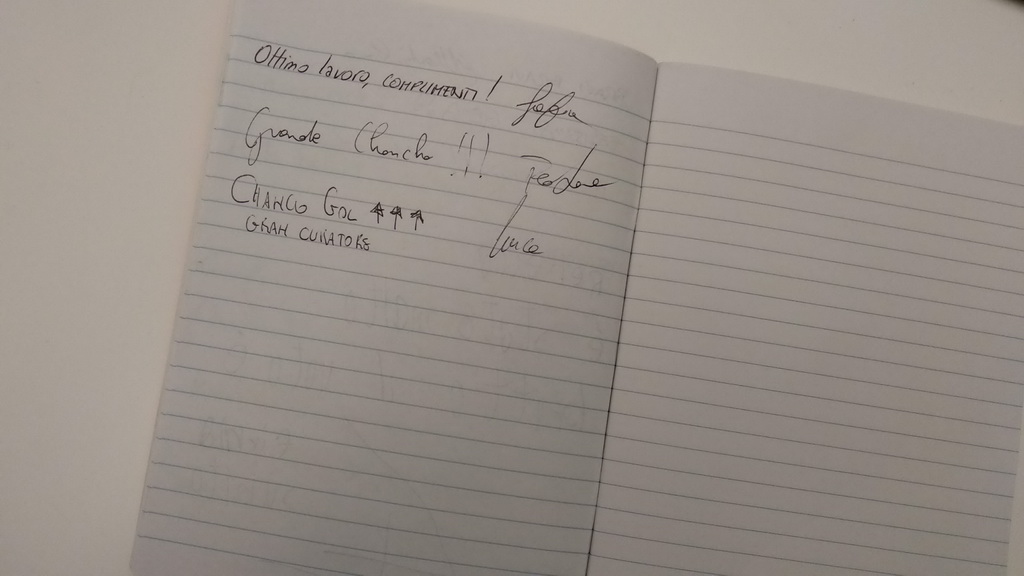 Ottimo lavoro, COMPLIMENTI!
Grande Chancho !!!
CHANCO GOL ↑↑↑ Luca
GRAN CURATORE